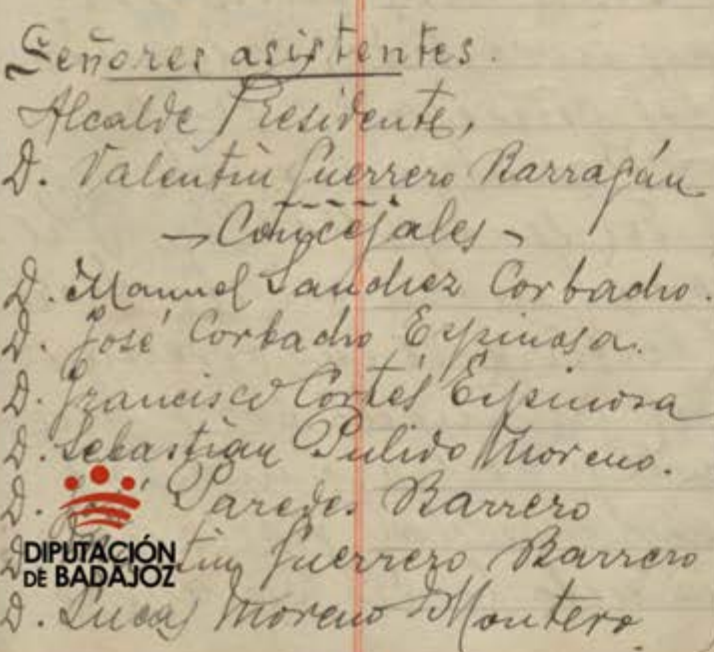 Señores asistentes.
Alcalde Presidente,
D. Valentin Guerrero Barragán
- Concejales -
D. Manuel Sanchez Corbacho.
D. José Corbacho Espinosa.
D. Francisco Cortés Espinosa
D. Sebastian Pulido Moreno.
D. Paredes Barrero
DIPUTACIÓN
DE BADAJOZ
D. Guerrero Barrero
D. Lucas Moreno Montero.